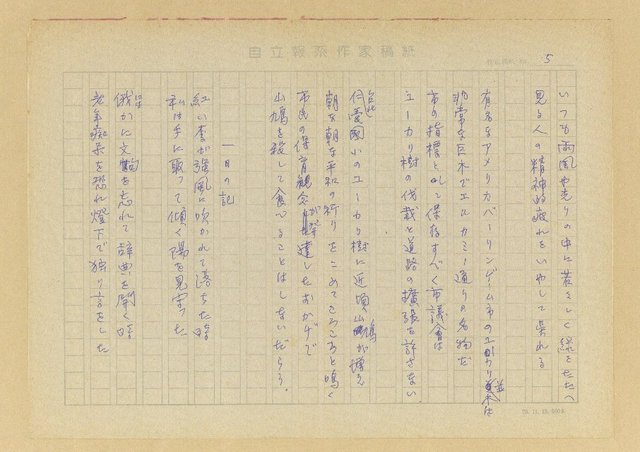 自立報系作家稿紙
5
いつも雨風や光りの中に蒼々しく緑をたたへ
見る人の精神的疲れをいやして呉れる
有名なアメリカバーリンゲーム市のユーカリ並木は
非常な巨木でエルカミノ通りの名物を
市の指標として保存すべく市議会は
ユーカリ樹の伐裁と道路の擴張を許さない
仁愛園のユーカリ樹に近頃山鳩が増え
朝な朝な平和の祈りをこめてころころと鳴く
市民の保育観念が発達したおかげで
山鳩を殺して食べることはしないだらう.
一月の記
紅い李が強風に吹かれて落ちた時
私は手に取って傾く陽を見守った
俄かに文勢を忘れて辞典を開く時
老年痴呆を恐れ燈下で独り言をした